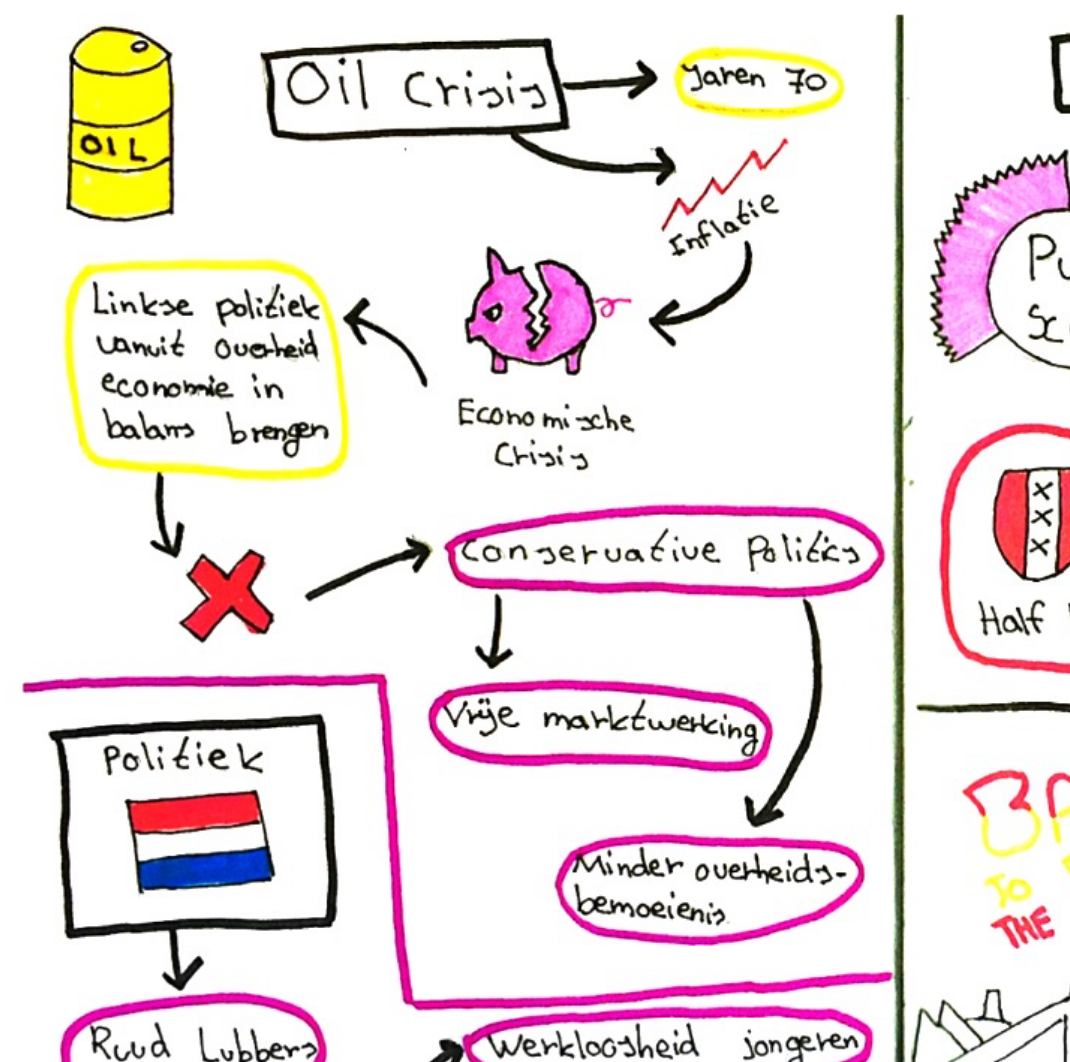 OIL
Oil Crisis
Jaren 70
Inflatie
Economische
Crisis
Linkse politiek
vanuit overheid
economie in
balans brengen
Conservative Politics
Vrije marktwerking
Minder overheids-
bemoeienis
Politiek
Ruud Lubbers
Werkloosheid jongeren
XXX
Half
TO
THE